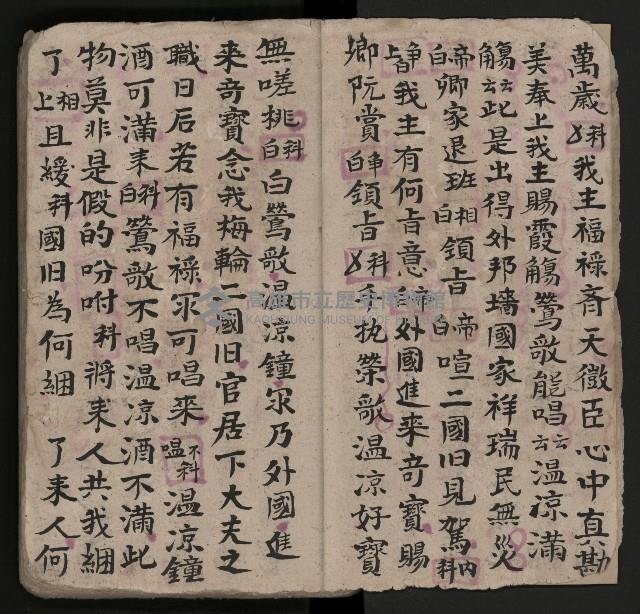 萬歲 科 我主福祿齊天微臣心中真勘
美奉上我主賜霞觴鶯歌能唱云云温凉滿
觴云云此是出得外邦墻國家祥瑞民無災
帝白卿家退班相白領旨帝白喧二國旧見駕内科
旨我主有何旨意 外國進来奇寶賜
鄉阮賞 白 領旨 科 手执荣歌温凉好寶
無嗟挑科白白鶯歌温凉鐘尔乃外國進
来奇寶念我梅輪二國旧官居下大夫之
職日后若有福祿尔可唱来 不科 温凉鐘
酒可滿来科白鶯歌不唱温凉酒不滿此
物莫非是假的吩咐科將来人共我綑
了相上且緩科國旧為何綑 了来人何
高雄市立歷史博物館
KAOHSIUNG MUSEUM OF HISTORY